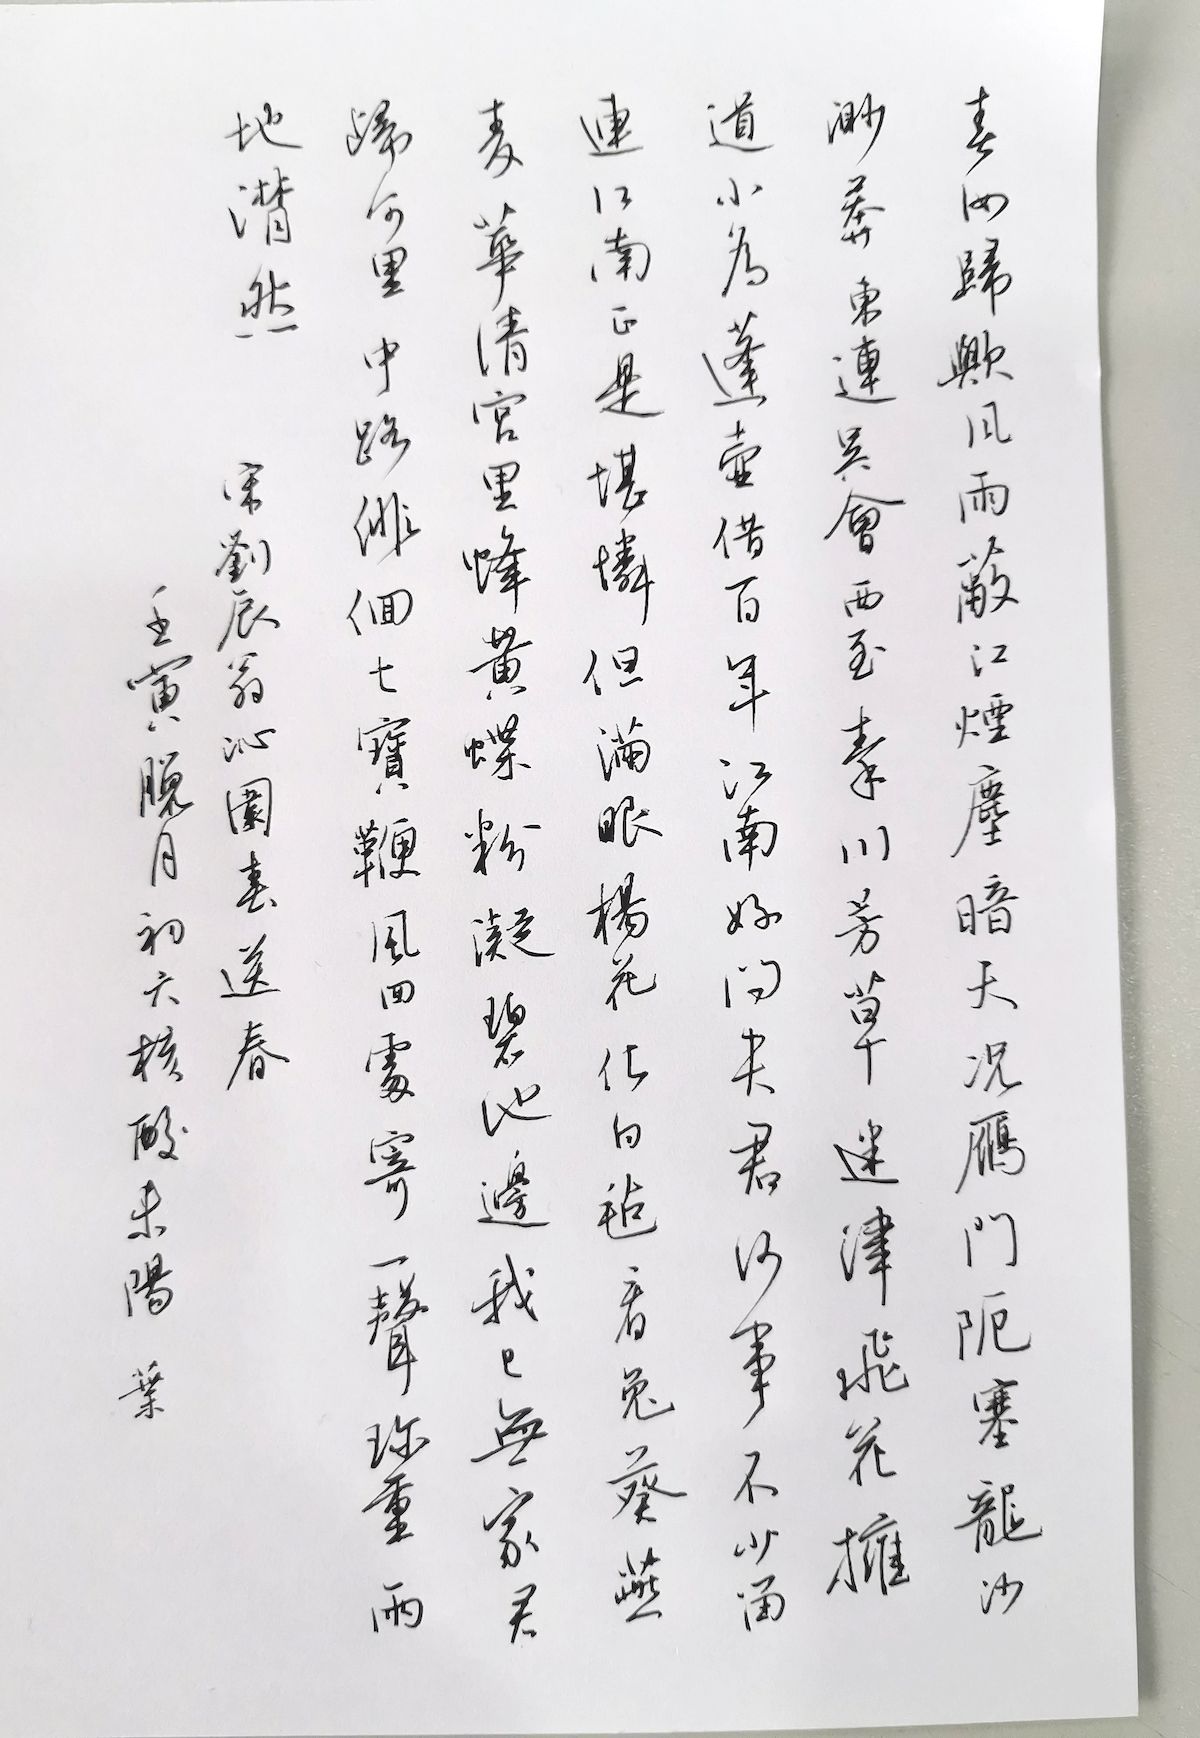 春汝歸歟風雨蔽江煙塵暗天况雁門阨塞龍沙
渺莽東連吳會西至秦川芳草迷津飛花擁
道小為蓬壺借百年江南好問夫君何事不少留
連江南正是堪憐但滿眼楊花化白毡看兔葵燕
麦華清宮里蜂黃蝶粉凝碧池邊我已無家君
歸何里中路徘徊七寶鞭風回處寄一聲珍重兩
地潸然
宋劉辰翁沁園春送春
壬寅臘月初六核酸未陽 葉